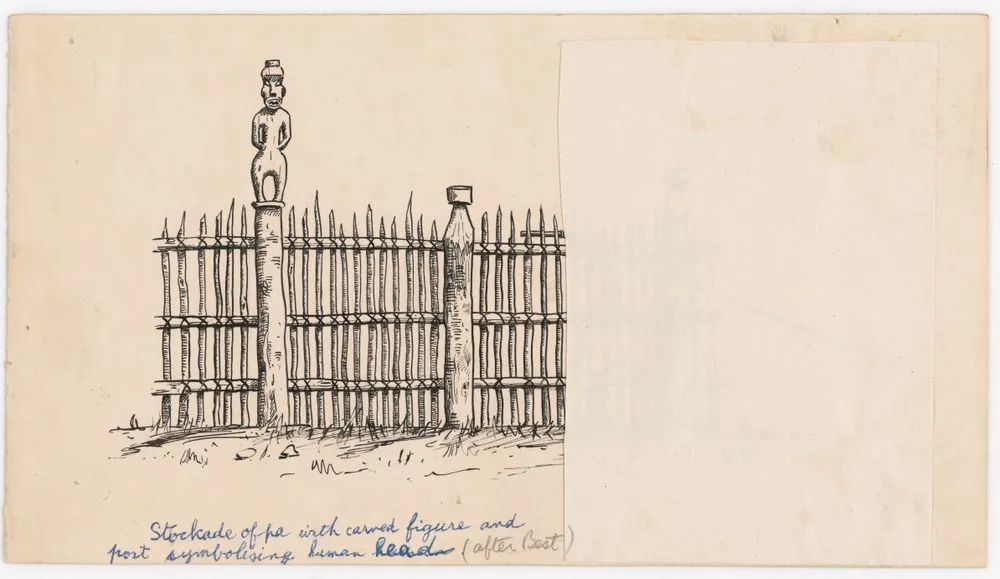 Stockade of pa with carved figure and
post symbolising human head (after Best)